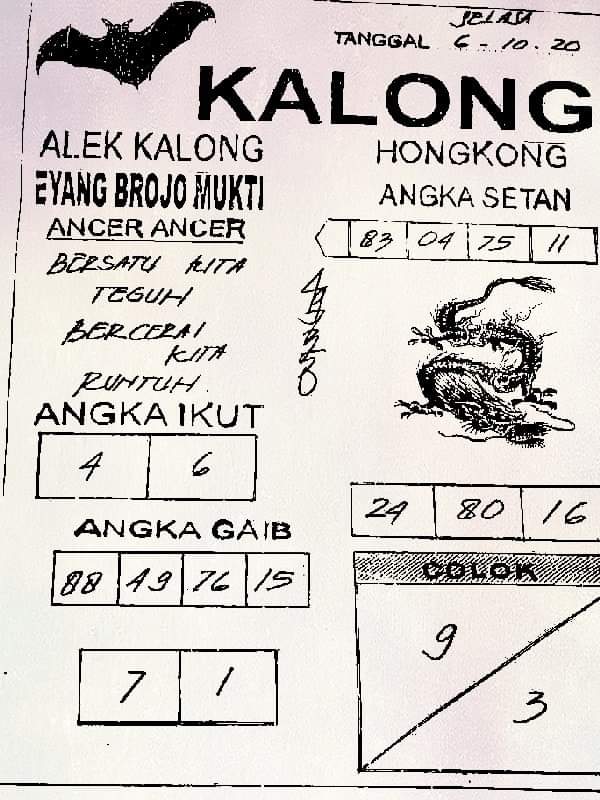 SELASA
TANGGAL 6 - 10 - 20
KALONG
ALEK KALONG
EYANG BROJO MUKTI
ANCER ANCER
BERSATU KITA
TEGUH
BERCERAI
KITA
RUNTUH.
ANGKA IKUT
4 6
ANGKA GAIB
88 49 76 15
7 1
HONGKONG
ANGKA SETAN
83 04 75 11
24 80 16
COLOK
9
3